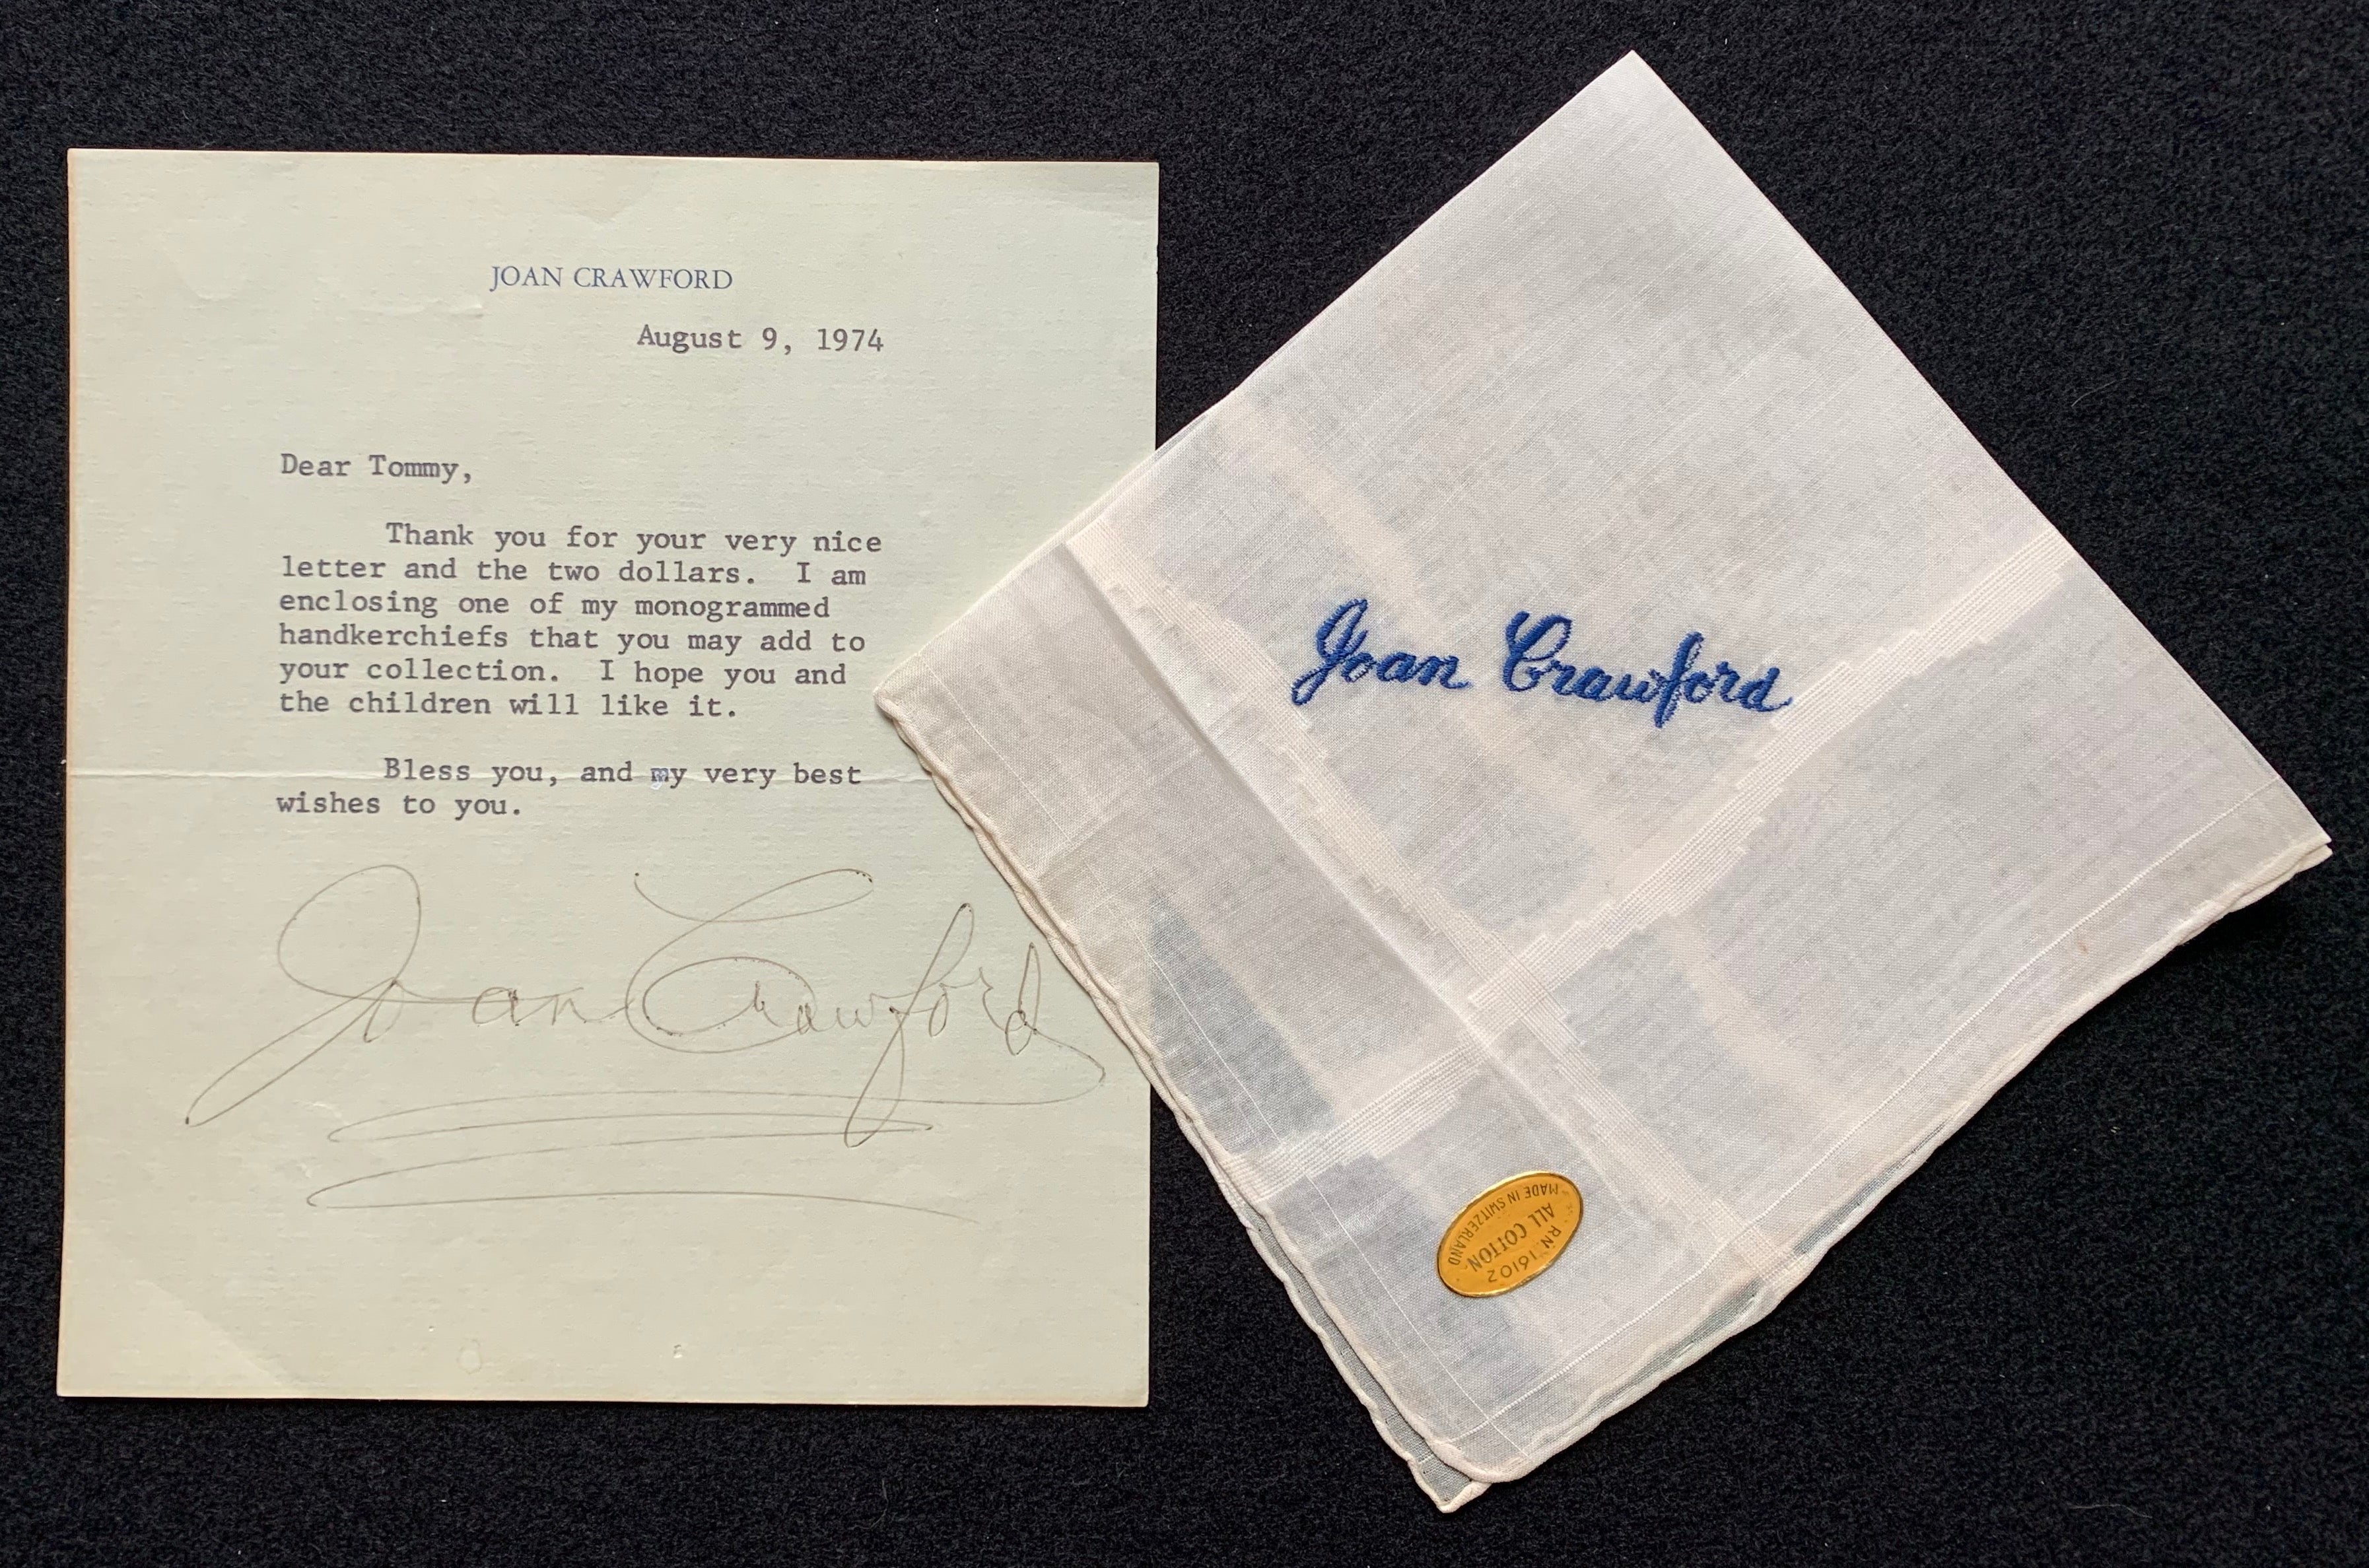 JOAN CRAWFORD
August 9, 1974
Dear Tommy,
Thank you for your very nice
letter and the two dollars. I am
enclosing one of my monogrammed
handkerchiefs that you may add to
your collection. I hope you and
the children will like it.
Bless you, and my very best
wishes to you.
Joan Crawford
Joan Crawford
RN 16102
ALL COTTON
MADE IN SWITZERLAND